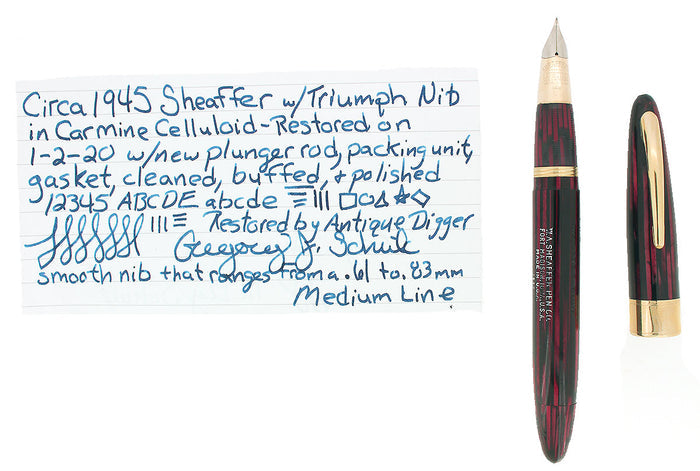 Circa 1945 Sheaffer w/Triumph Nib
in Carmine Celluloid-Restored on
1-2-20 w/new plunger rod, packing unit,
gasket, cleaned, buffed, + polished
12345 ABCDE abcde
Restored by Antique Digger
Gregory J.
smooth nib that ranges from a .61 to .83mm
Medium Line
W.A. SHEAFFER PEN CO.
FORT MADISON, IOWA, U.S.A.
MADE IN U.S.A.